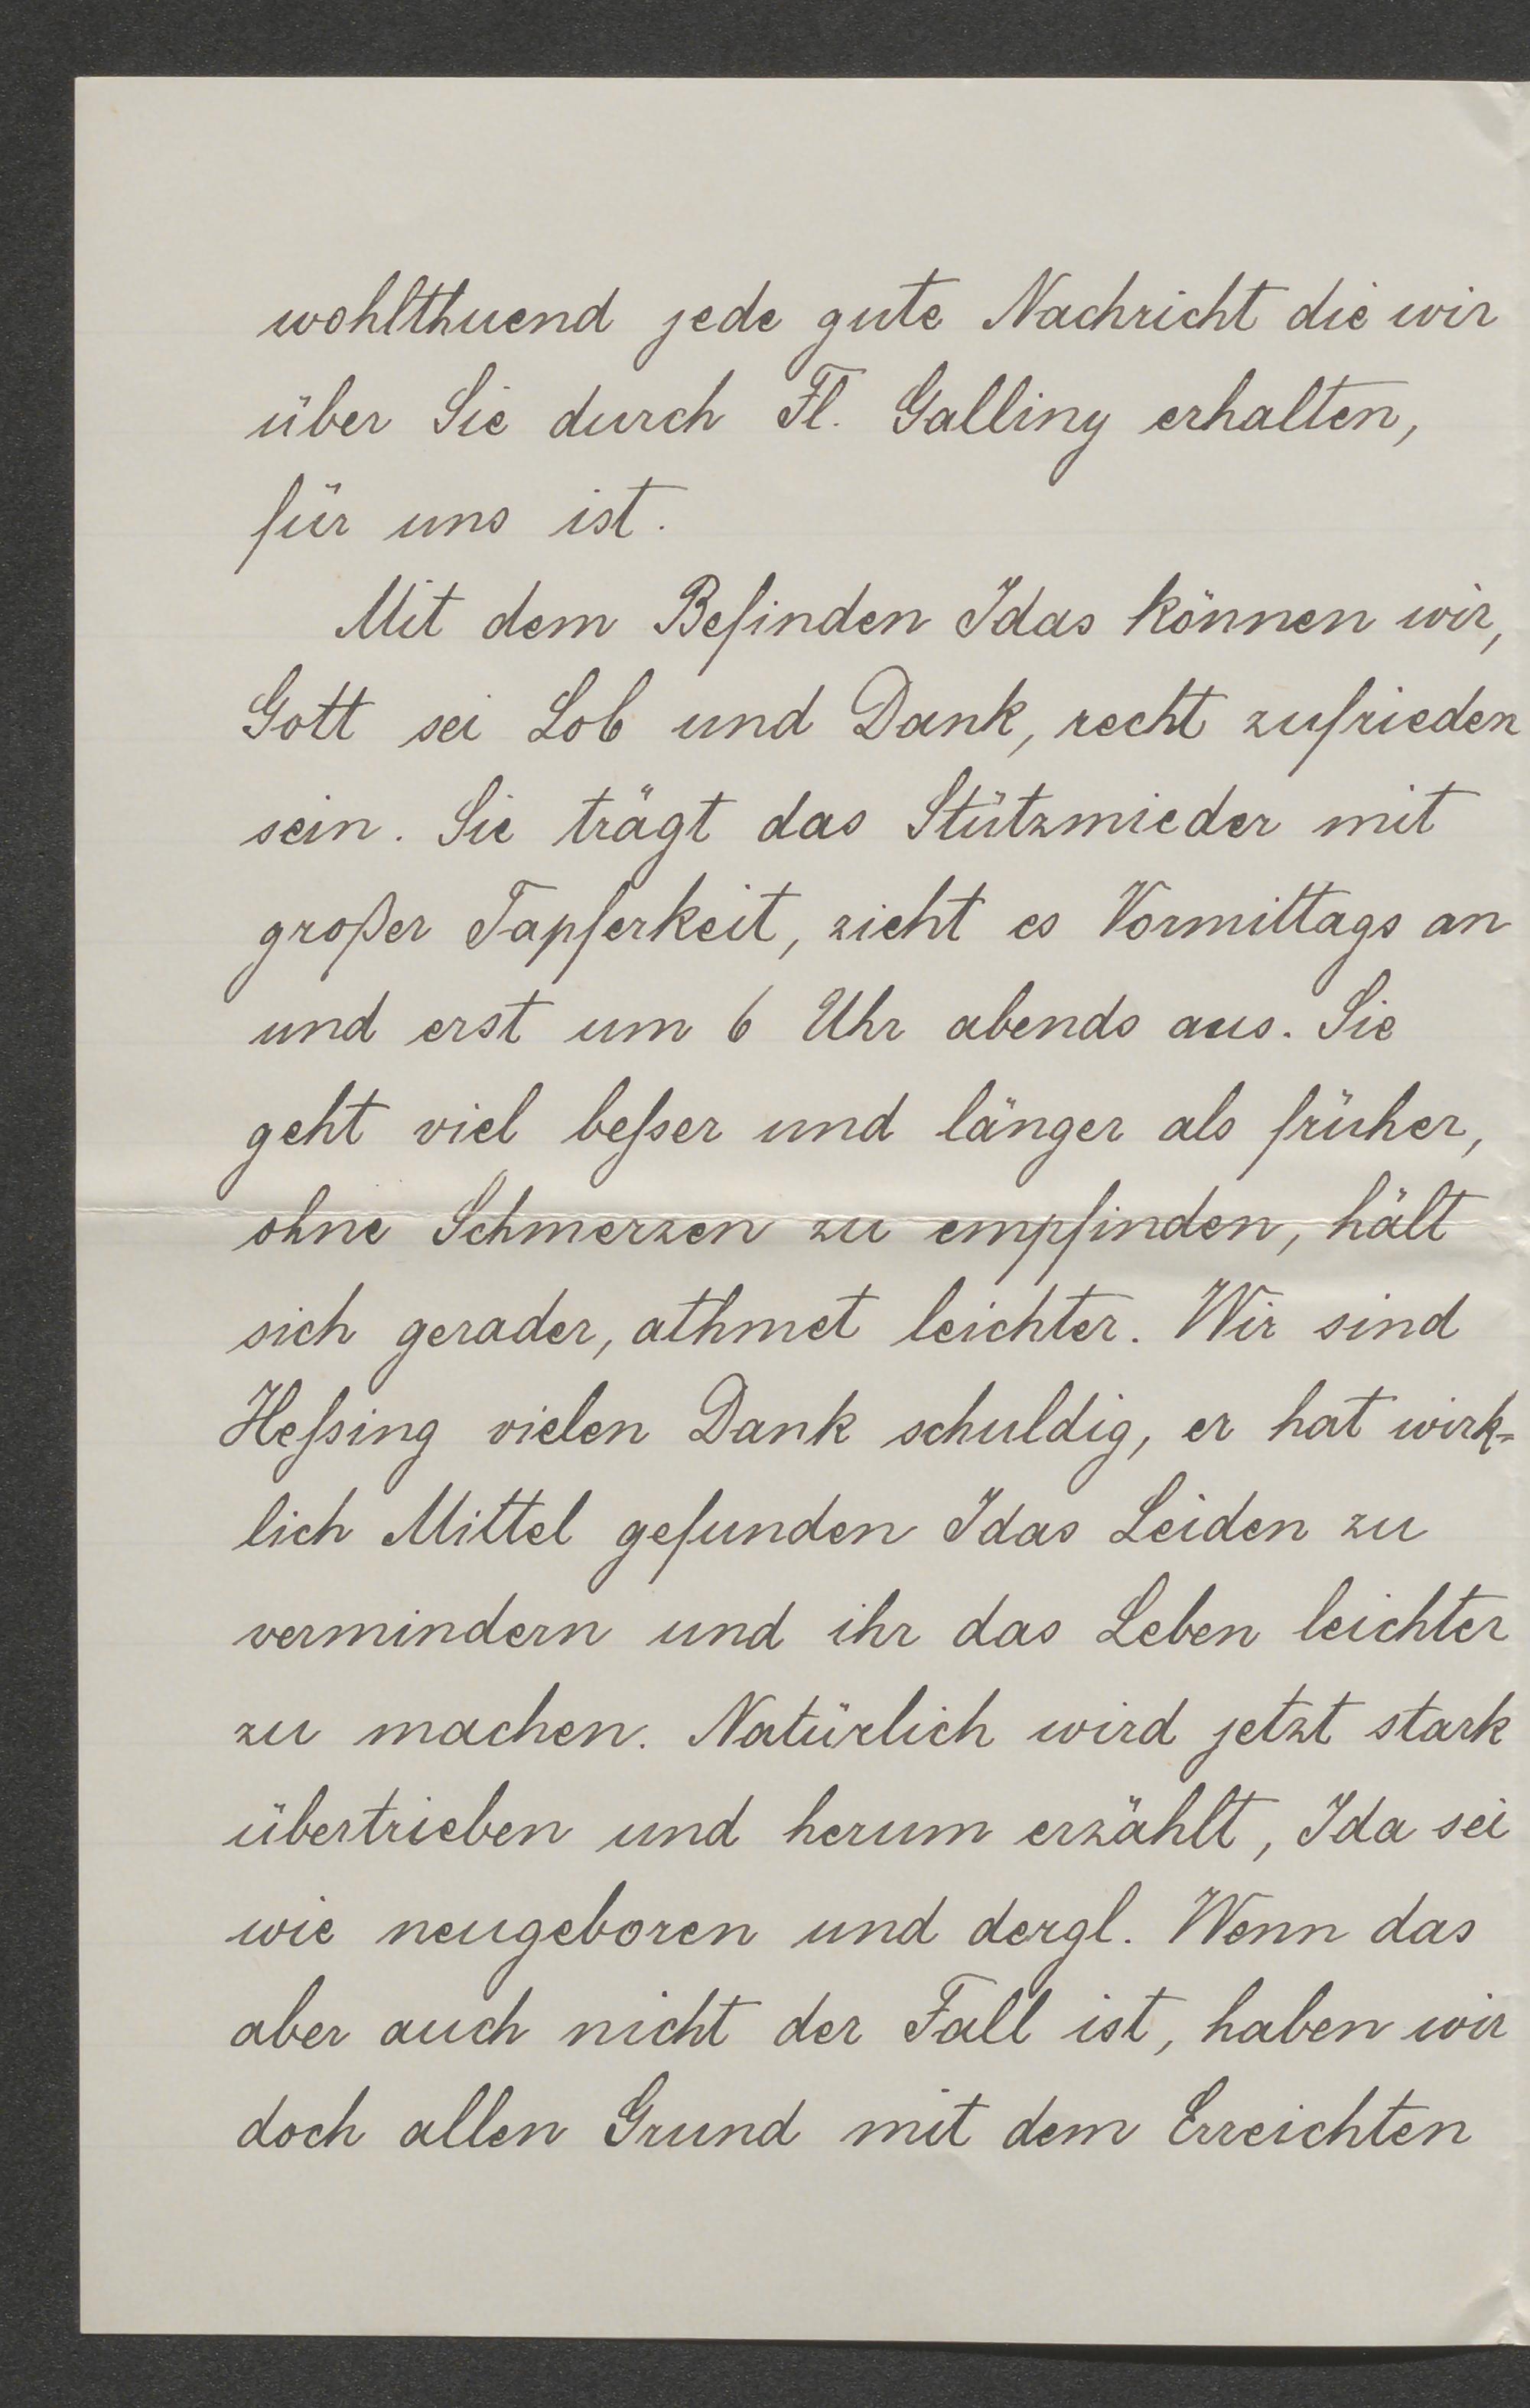 wohlthuend jede gute Nachricht die wir
über Sie durch Fl. Galliny erhalten,
für uns ist.
Mit dem Befinden Idas können wir,
Gott sei Lob und Dank, recht zufrieden
sein. Sie trägt das Stützmieder mit
großer Tapferkeit, zieht es Vormittags an
und erst um 6 Uhr abends aus. Sie
geht viel beßer und länger als früher,
ohne Schmerzen zu empfinden, hält
sich gerader, athmet leichter. Wir sind
Heßing vielen Dank schuldig, er hat wirk-
lich Mittel gefunden Idas Leiden zu
vermindern und ihr das Leben leichter
zu machen. Natürlich wird jetzt stark
übertrieben und herum erzählt, Ida sei
wie neugeboren und dergl. Wenn das
aber auch nicht der Fall ist, haben wir
doch allen Grund mit dem Erreichten